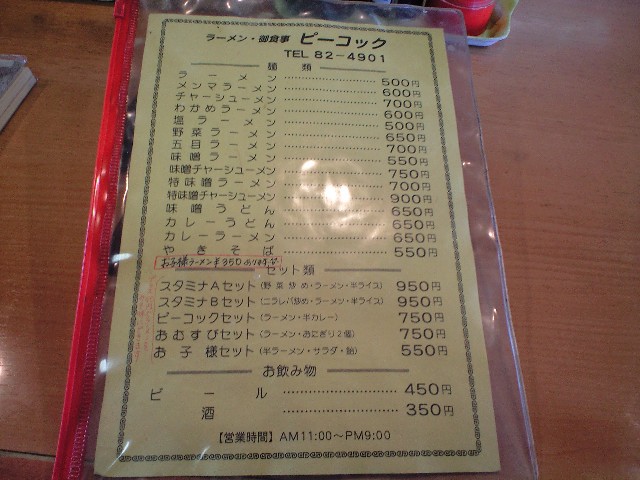 ラーメン・御食事 ピーコック
TEL 82-4901
麺類
ラーメン 500円
メンマラーメン 600円
チャーシューメン 700円
わかめラーメン 600円
塩ラーメン 500円
野菜ラーメン 650円
五目ラーメン 700円
味噌ラーメン 550円
味噌チャーシューメン 750円
特味噌ラーメン 700円
特味噌チャーシューメン 900円
味噌うどん 650円
カレーうどん 650円
カレーラーメン 650円
やきそば 550円
お子様ラーメン¥350あります
セット類
スタミナAセット(野菜炒め・ラーメン・半ライス) 950円
スタミナBセット(ニラレバ炒め・ラーメン・半ライス) 950円
ピーコックセット(ラーメン・半カレー) 750円
おむすびセット(ラーメン・おにぎり2個) 750円
お子様セット(半ラーメン・サラダ・飴) 550円
お飲み物
ビール 450円
酒 350円
【営業時間】AM11:00〜PM9:00